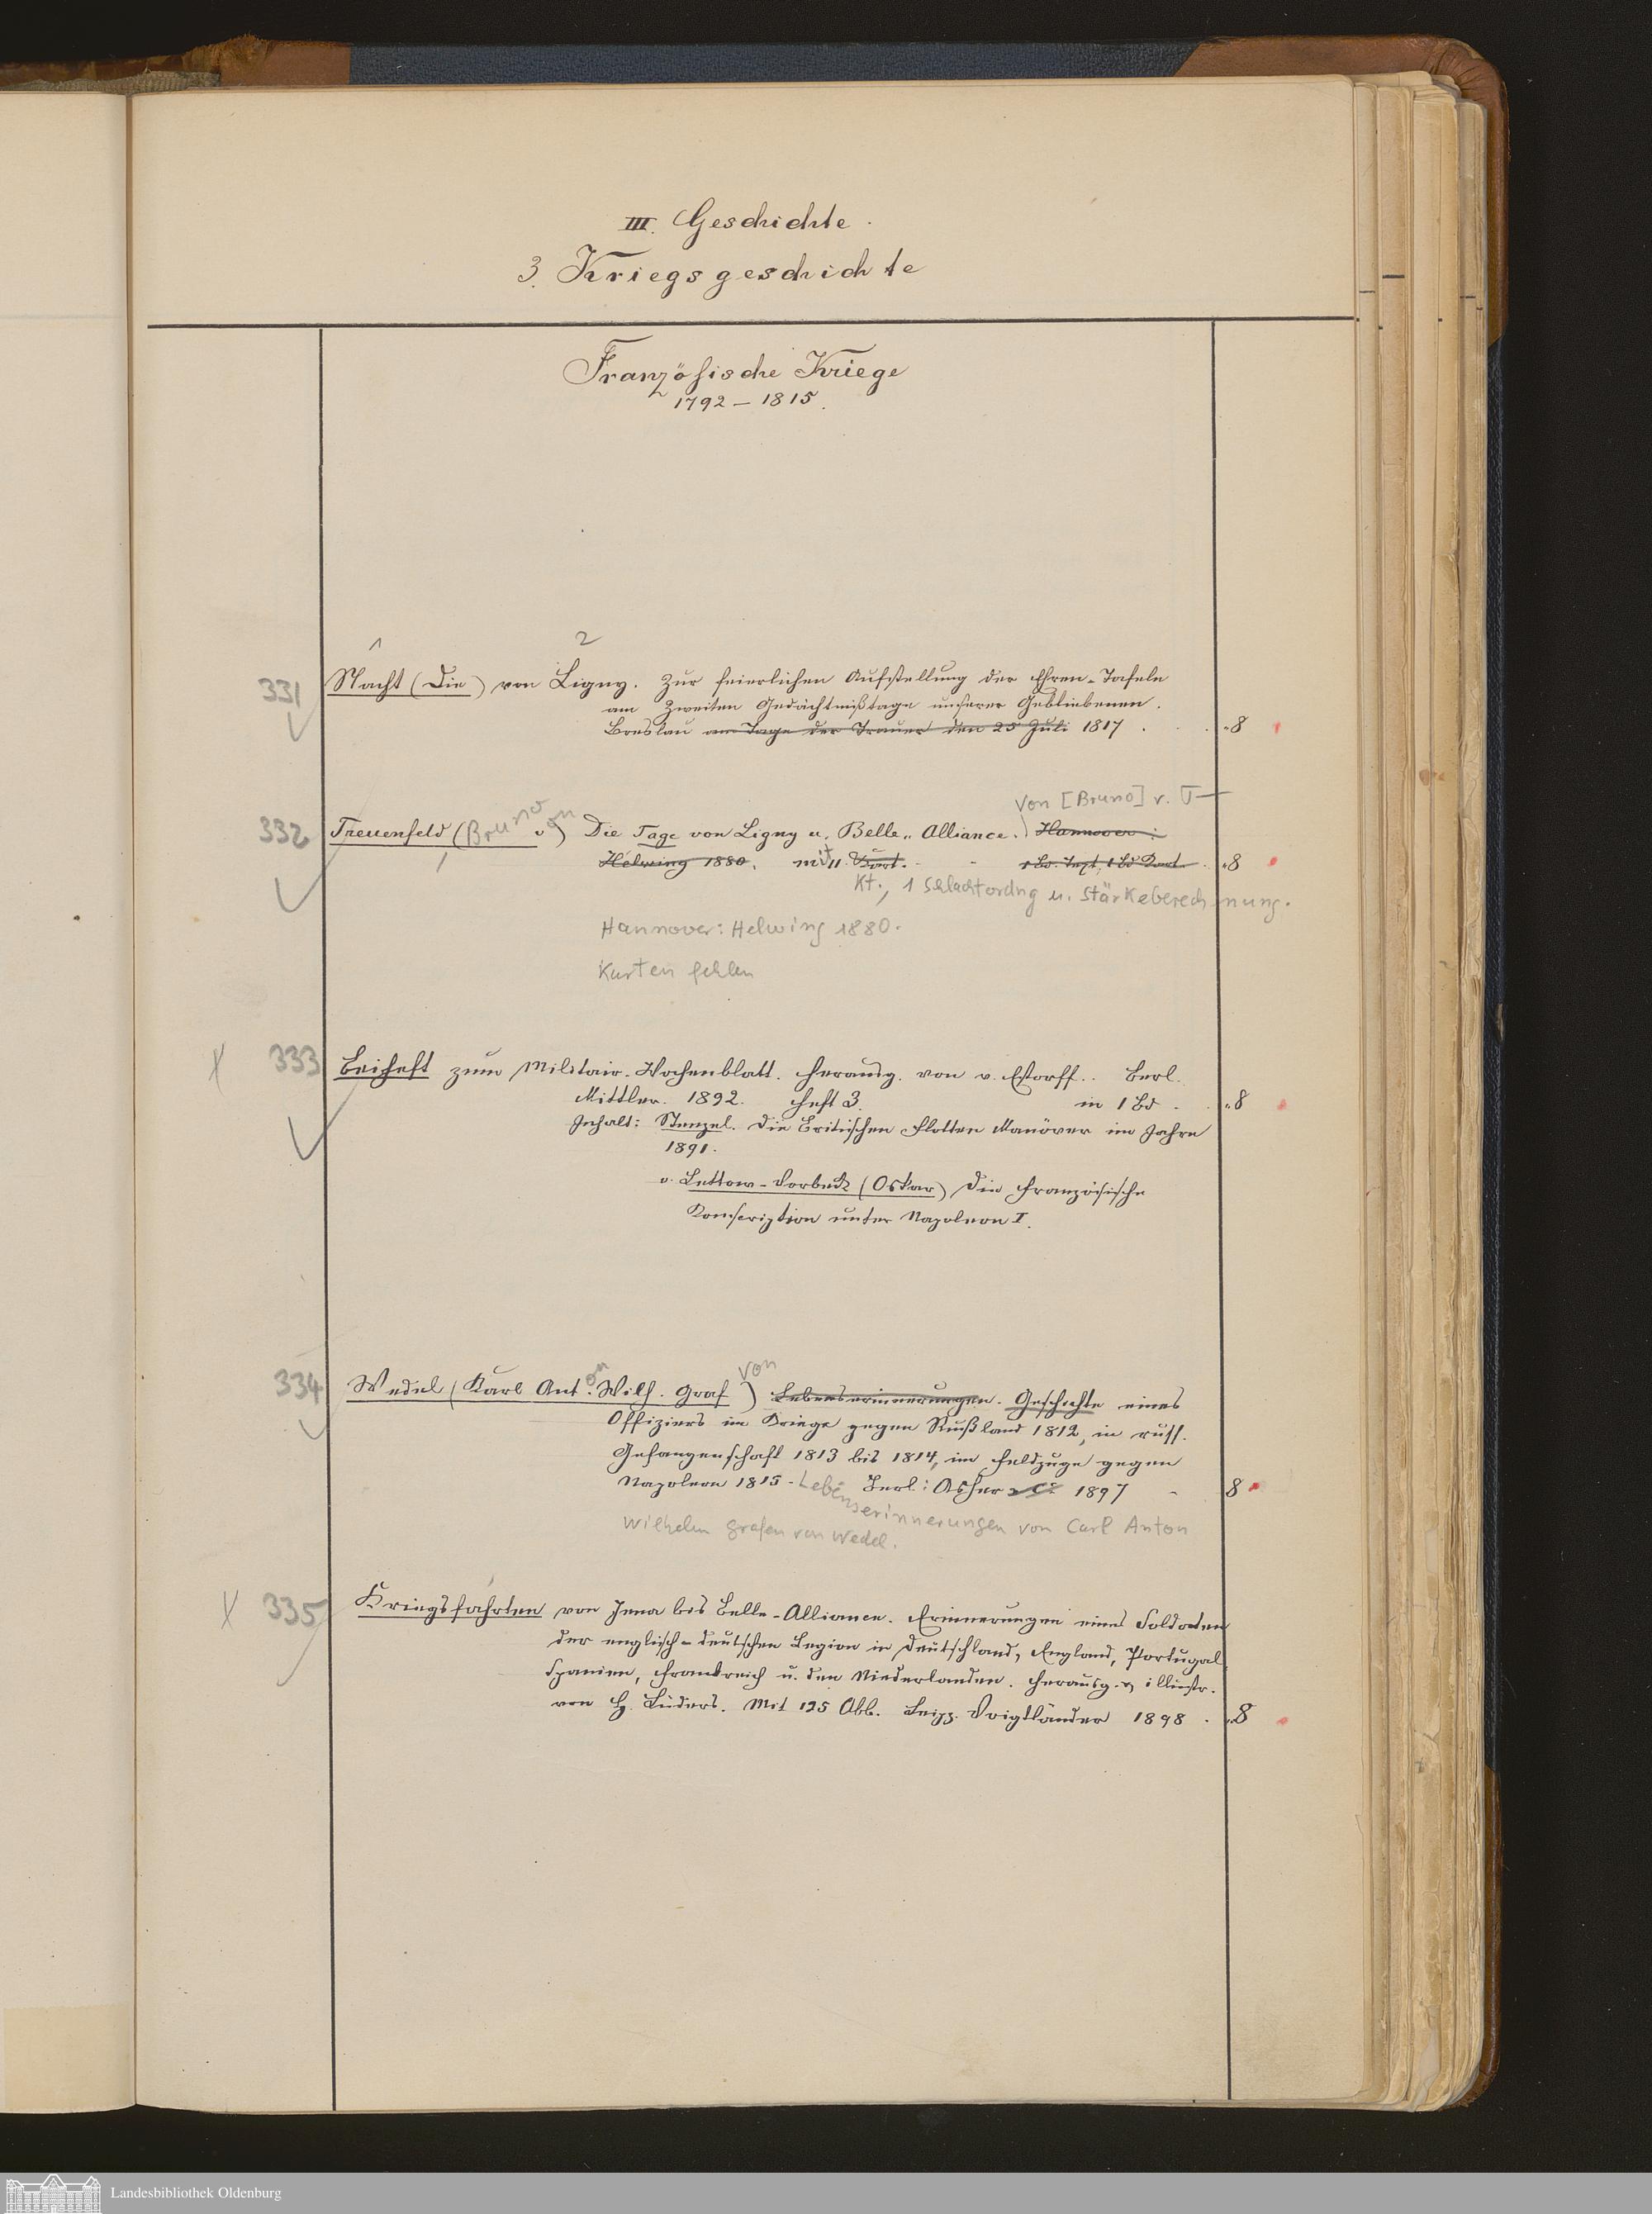 III. Geschichte.
3. Kriegsgeschichte
Französische Kriege
1792–1815.
1 2
331 Nacht (Die) von Ligny. Zur feierlichen Aufstellung der Ehren-Tafeln
am Zweiten Gedächtnißtage unserer Gebliebenen.
Breslau am Tage der Trauer den 25 Juli 1817 . . . 8
Von [Bruno] v. T—
332 Treuenfeld (Bruno von) Die Tage von Ligny u. Belle-Alliance. Hannover:
Helwing 1880. mit 11 Kart. - - 1 Bd. Text, 1 Bd Kart. . 8
Kt., 1 Schlachtordng u. Stärkeberechnung.
Hannover: Helwing 1880.
Karten fehlen
X 333 Beiheft zum Militair-Wochenblatt. Herausg. von v. Estorff.. Berl.
Mittler. 1892. Heft 3. in 1 Bd - . 8
Inhalt: Stenzel. Die Britischen Flotten Manöver im Jahre
1891.
v. Lettow-Vorbeck (Oskar) Die französische
Konscription unter Napoleon I.
334 Wedel (Karl Anton Wilh. Graf von) Lebenserinnerungen. Geschichte eines
Offiziers im Kriege gegen Rußland 1812, in russ.
Gefangenschaft 1813 bis 1814, im Feldzuge gegen
Napoleon 1815 - Lebenserinnerungen von Carl Anton
Berl: Asher & Co 1897 - 8
Wilhelm Grafen von Wedel.
X 335 Kriegsfahrten von Jena bis Belle-Alliance. Erinnerungen eines Soldaten
der englisch-deutschen Legion in Deutschland, England, Portugal,
Spanien, Frankreich u. den Niederlanden. Herausg. & illustr.
von H. Lüders. Mit 125 Abb. Leipz. Voigtländer 1898 . 8
Landesbibliothek Oldenburg